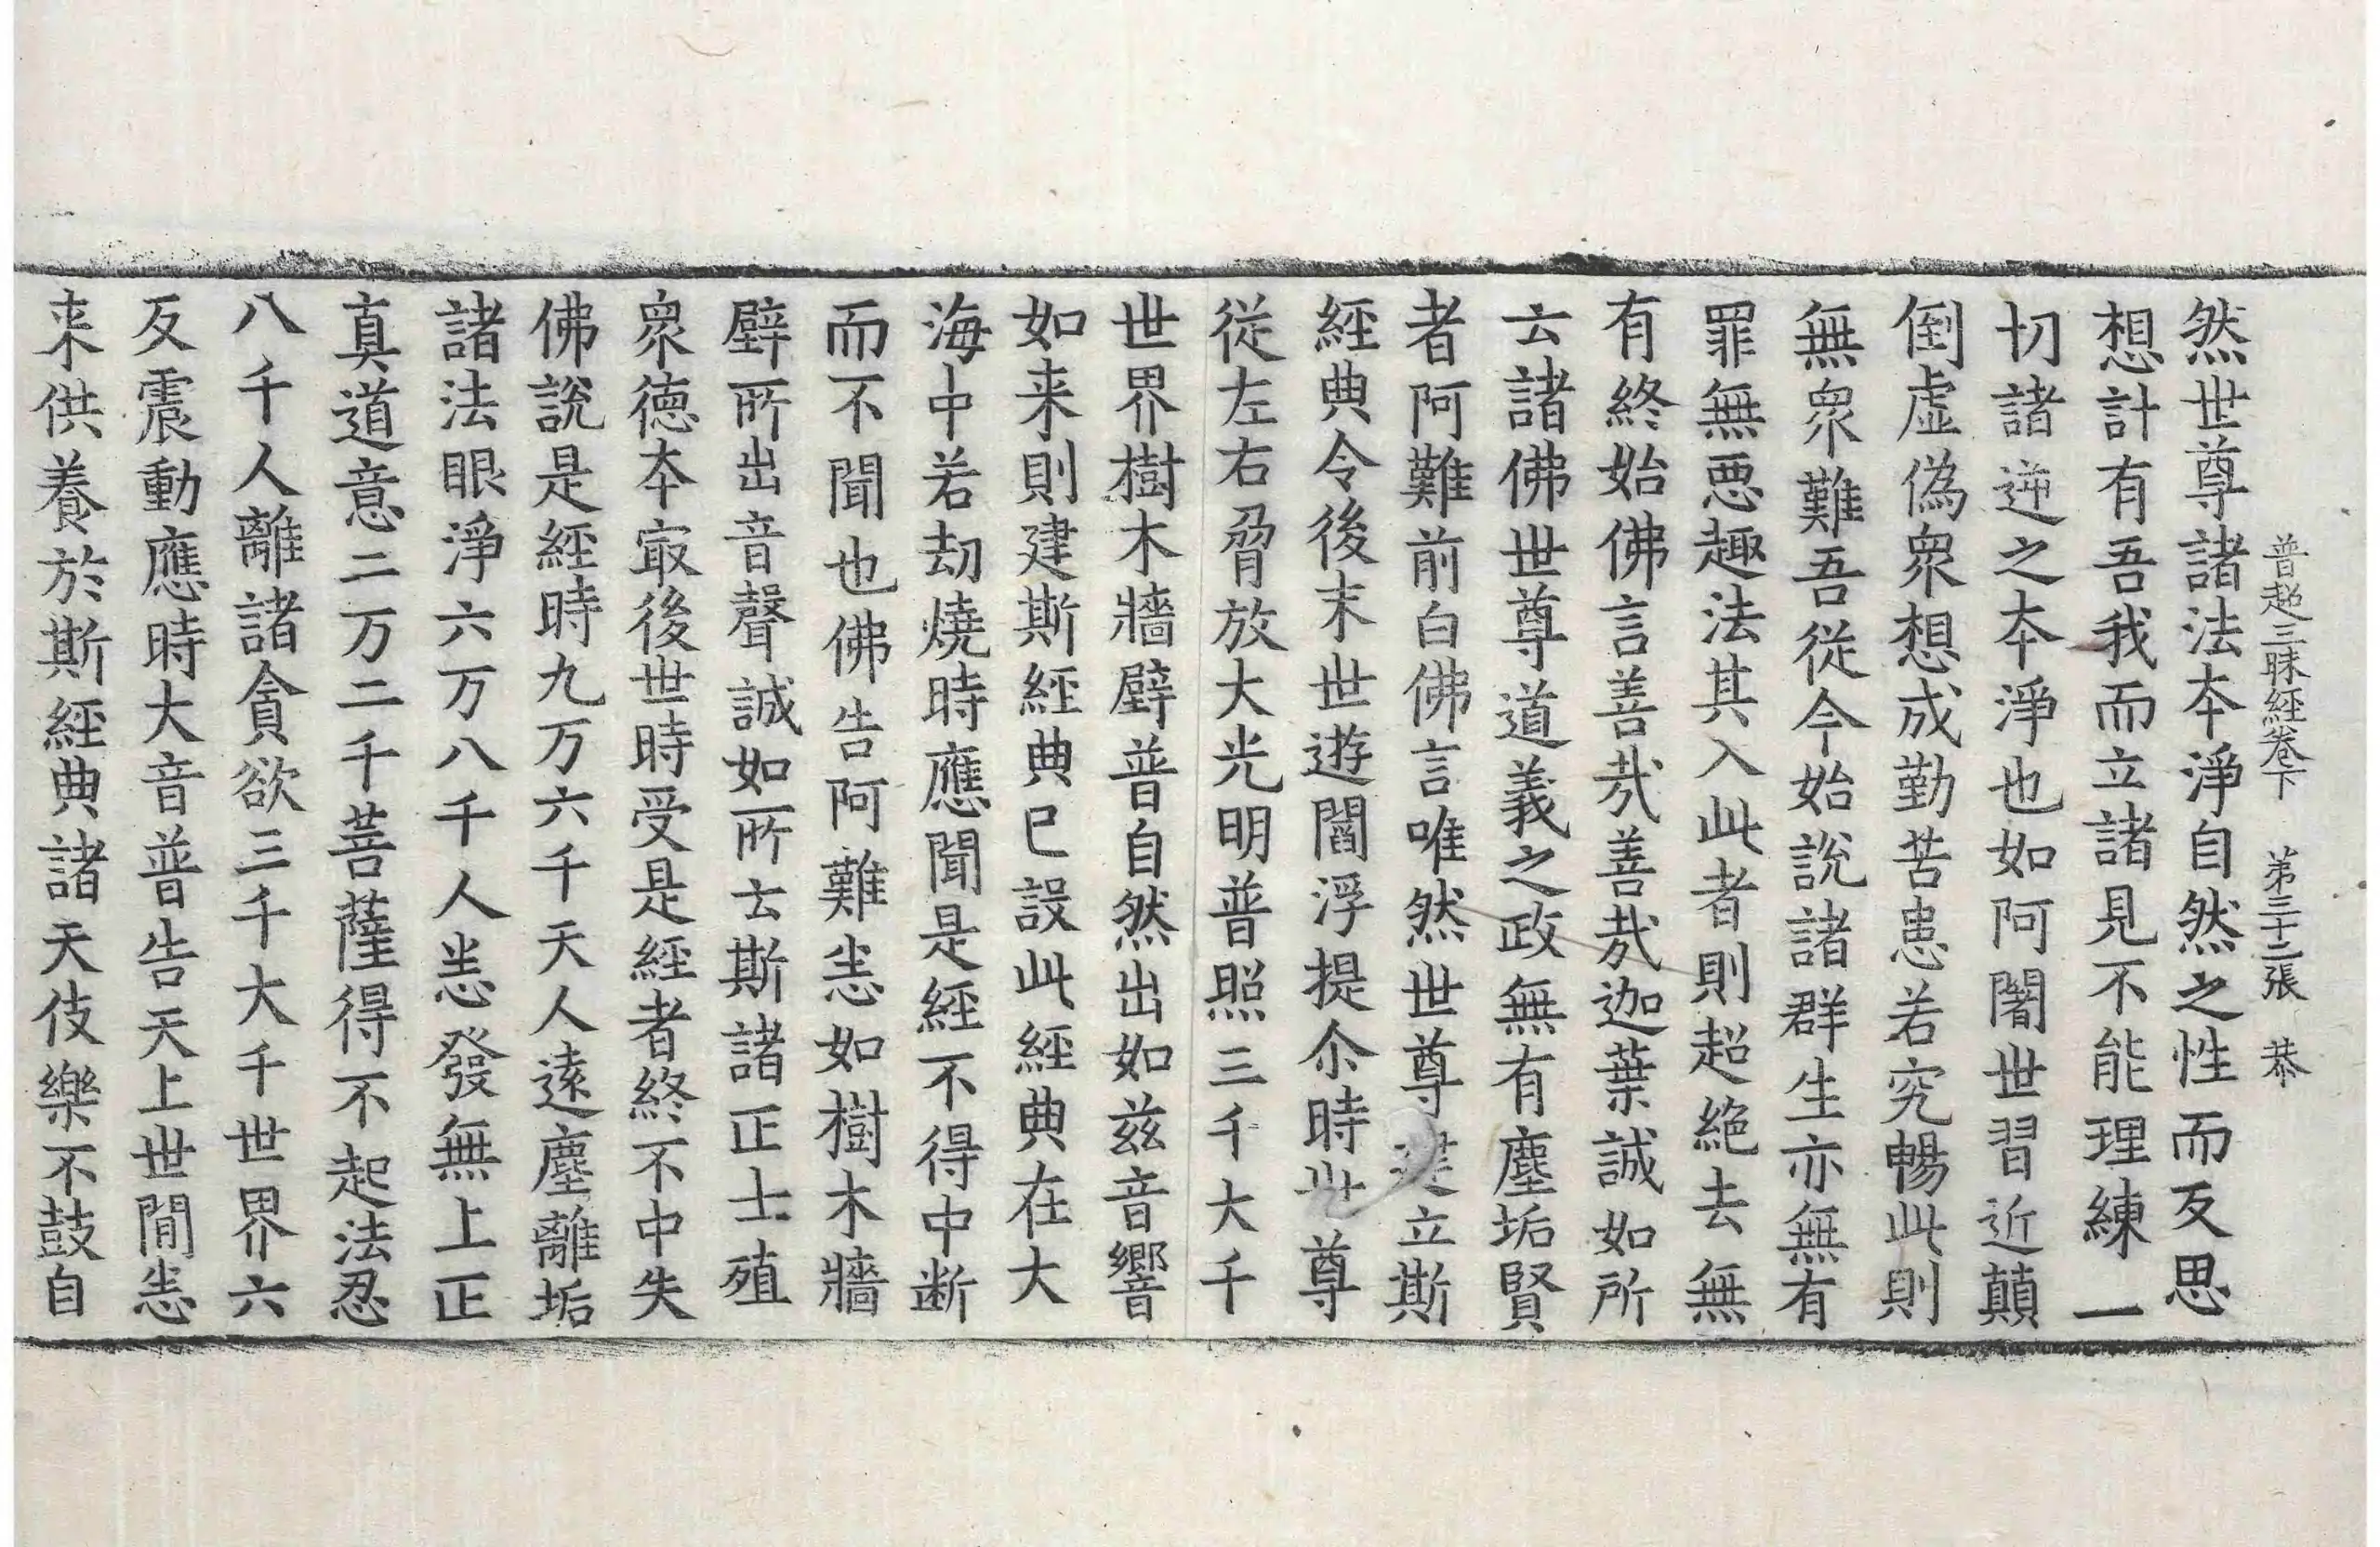 普超三昧經卷下　第三十二張　恭
然世尊諸法本淨自然之性而反思
想計有吾我而立諸見不能理練一
切諸逆之本淨也如阿闍世習近顛
倒虛偽衆想成勤苦患若究暢此則
無衆難吾從今始說諸群生亦無有
罪無惡趣法其入此者則超絕去無
有終始佛言善哉善哉迦葉誠如所
云諸佛世尊道義之政無有塵垢賢
者阿難前白佛言唯然世尊立斯
經典令後末世遊閻浮提尒時世尊
從左右脅放大光明普照三千大千
世界樹木牆壁普自然出如兹音響
如来則建斯經典已設此經典在大
海中若劫燒時應聞是經不得中断
而不聞也佛告阿難恚如樹木牆
壁所出音聲誠如所云斯諸正士殖
衆德本冣後世時受是經者終不中失
佛說是經時九万六千天人遠塵離垢
諸法眼淨六万八千人恚發無上正
真道意二万二千菩薩得不起法忍
八千人離諸貪欲三千大千世界六
反震動應時大音普告天上世間恚
来供養於斯經典諸天伎樂不鼓自